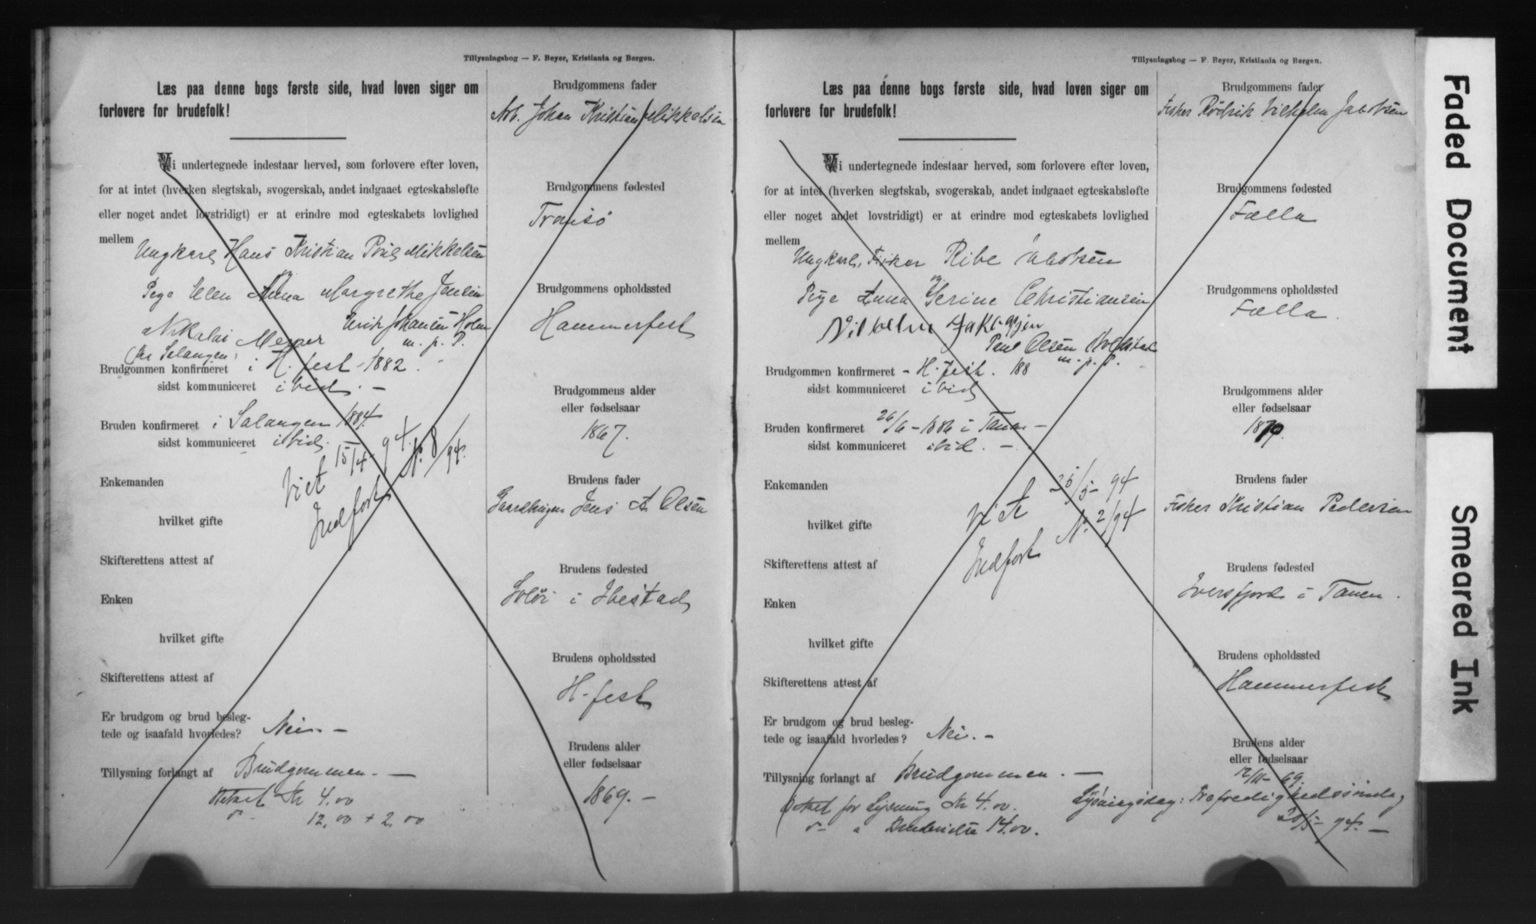 Tillysningsbog — F. Beyer, Kristiania og Bergen.
Læs paa denne bogs første side, hvad loven siger om
forlovere for brudefolk!
Vi undertegnede indestaar herved, som forlovere efter loven,
for at intet (hverken slegtskab, svogerskab, andet indgaaet egteskabsløfte
eller noget andet lovstridigt) er at erindre mod egteskabets lovlighed
mellem Ungkarl Hans Kristian Mikkelsen
og
Pige Elen Anna Margrethe Jensen
Nikolai Meyer Erik Johansen Holm
m. p. P.
(fra Salangen)
Brudgommen konfirmeret i H.fest 1882.
sidst kommuniceret ibid. —
Bruden konfirmeret i Salangen 1884.
sidst kommuniceret ibid.
Viet 15/4 94.
Indført No. 8/94.
Enkemanden
hvilket gifte
Skifterettens attest af
Enken
hvilket gifte
Skifterettens attest af
Er brudgom og brud besleg-
tede og isaafald hvorledes? Nei. —
Tillysning forlangt af Brudgommen. —
Betalt Kr 4.00
12,00 + 2,00
Brudgommens fader
Arb. Johan Kristian Mikkelsen
Brudgommens fødested
Tromsø
Brudgommens opholdssted
Hammerfest
Brudgommens alder
eller fødselsaar
1867.
Brudens fader
Gaardbruger Jens A. Olsen
Brudens fødested
i Ibestad
Brudens opholdssted
H-fest
Brudens alder
eller fødselsaar
1869. —
Tillysningsbog — F. Beyer, Kristiania og Bergen.
Læs paa denne bogs første side, hvad loven siger om
forlovere for brudefolk!
Vi undertegnede indestaar herved, som forlovere efter loven,
for at intet (hverken slegtskab, svogerskab, andet indgaaet egteskabsløfte
eller noget andet lovstridigt) er at erindre mod egteskabets lovlighed
mellem
Ungkarl, Fisker Ribe Jakobsen
og
Pige Anna Serine Christiansen
Vilhelm Jakobsen
Paul Olsen
m. p. P.
Brudgommen konfirmeret - H.fest. 188
sidst kommuniceret ibid
Bruden konfirmeret 26/6 - 1886 i Tanen —
sidst kommuniceret ibid. —
Viet 25/5 94
Indført No. 2/94
Enkemanden
hvilket gifte
Skifterettens attest af
Enken
hvilket gifte
Skifterettens attest af
Er brudgom og brud besleg-
tede og isaafald hvorledes? Nei. —
Tillysning forlangt af Brudgommen. —
Betalt for Lysning Kr 4.00.
14.00.
Brudgommens fader
Fisker Rödrik Vilhelm Jakobsen
Brudgommens fødested
Fælla
Brudgommens opholdssted
Fælla.
Brudgommens alder
eller fødselsaar
1870.
Brudens fader
Fisker Kristian Pedersen
Brudens fødested
Iversfjord i Tanen.
Brudens opholdssted
Hammerfest
Brudens alder
eller fødselsaar
69.
Lysningsdag: Trefoldighedssøndag
20/5 - 94. —
Faded Document
Smeared Ink